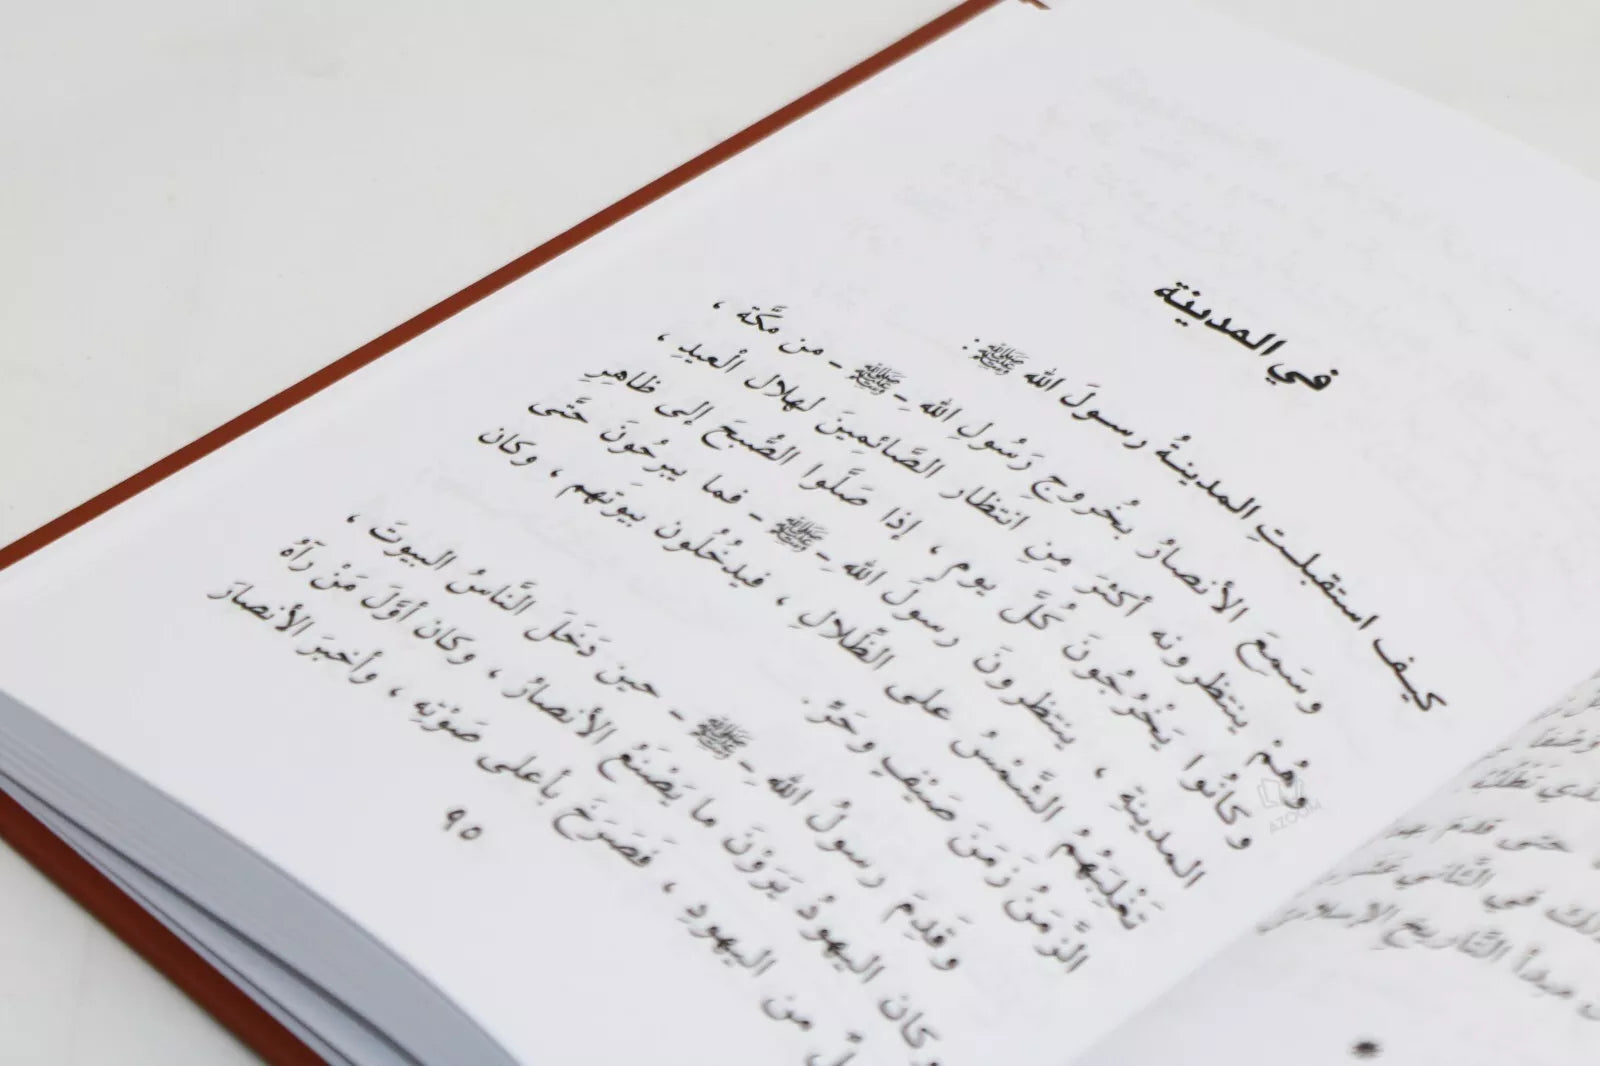 في المدينة
كيف استقبلتِ المدينةُ رسولَ الله ﷺ:
وسَمِعَ الأنصارُ بخُروجِ رَسُولِ اللهِ - ﷺ - من مَّكَّة ،
وهُمْ ينتظرونه أكثرَ مِنِ انتظار الصَّائِمِينَ لهلال الْعيدِ ،
وكانُوا يَخْرُجُونَ كُلَّ يومٍ ، إذا صَلَّوا الصُّبحَ إلى ظاهِرِ
المدينةِ ، ينتظرونَ رسولَ اللهِ - ﷺ - فما يبرحُونَ حَتَّى
تَغْلِبَهُمُ الشَّمْسُ على الظِّلالِ ، فيدخُلُون بيوتهم ، وكان
الزَّمَنُ زَمَنَ صَيْفٍ وحَرٍّ .
وقَدِمَ رسولُ اللهِ - ﷺ - حين دَخَلَ النَّاسُ البيوتَ ،
وكان اليهودُ يَرَوْنَ ما يَصْنَعُ الأنصارُ ، وكان أوَّلَ مَنْ رَآهُ
من اليهودِ ، فَصَرَخَ بأعلى صَوْتِه ، وأخبرَ الأنصارَ
٩٥
حتى قدم
في الثَّاني عشر
مبدأ التَّاريخ الإسلامي
AZOOM